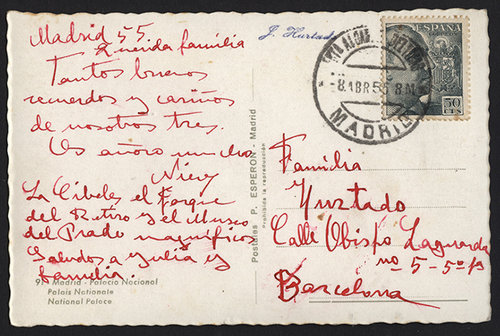 Madrid 55
Querida familia
Tantos buenos
recuerdos y cariños
de nosotros tres.
Os añoro mucho
Niev
La Cibeles, el Parque
del Retiro y el Museo
del Prado magníficos
Saludos a Julia y
familia.
91. - Madrid - Palacio Nacional
Palais Nationale
National Palace
Postales P. ESPERON - Madrid
Prohibida la reproducción
J. Hurtado
8 ABR 55 8M
MADRID
ESPAÑA
50
CTS
Familia
Hurtado
Calle Obispo Laguarda
nº 5 - 5º 1ª
Barcelona